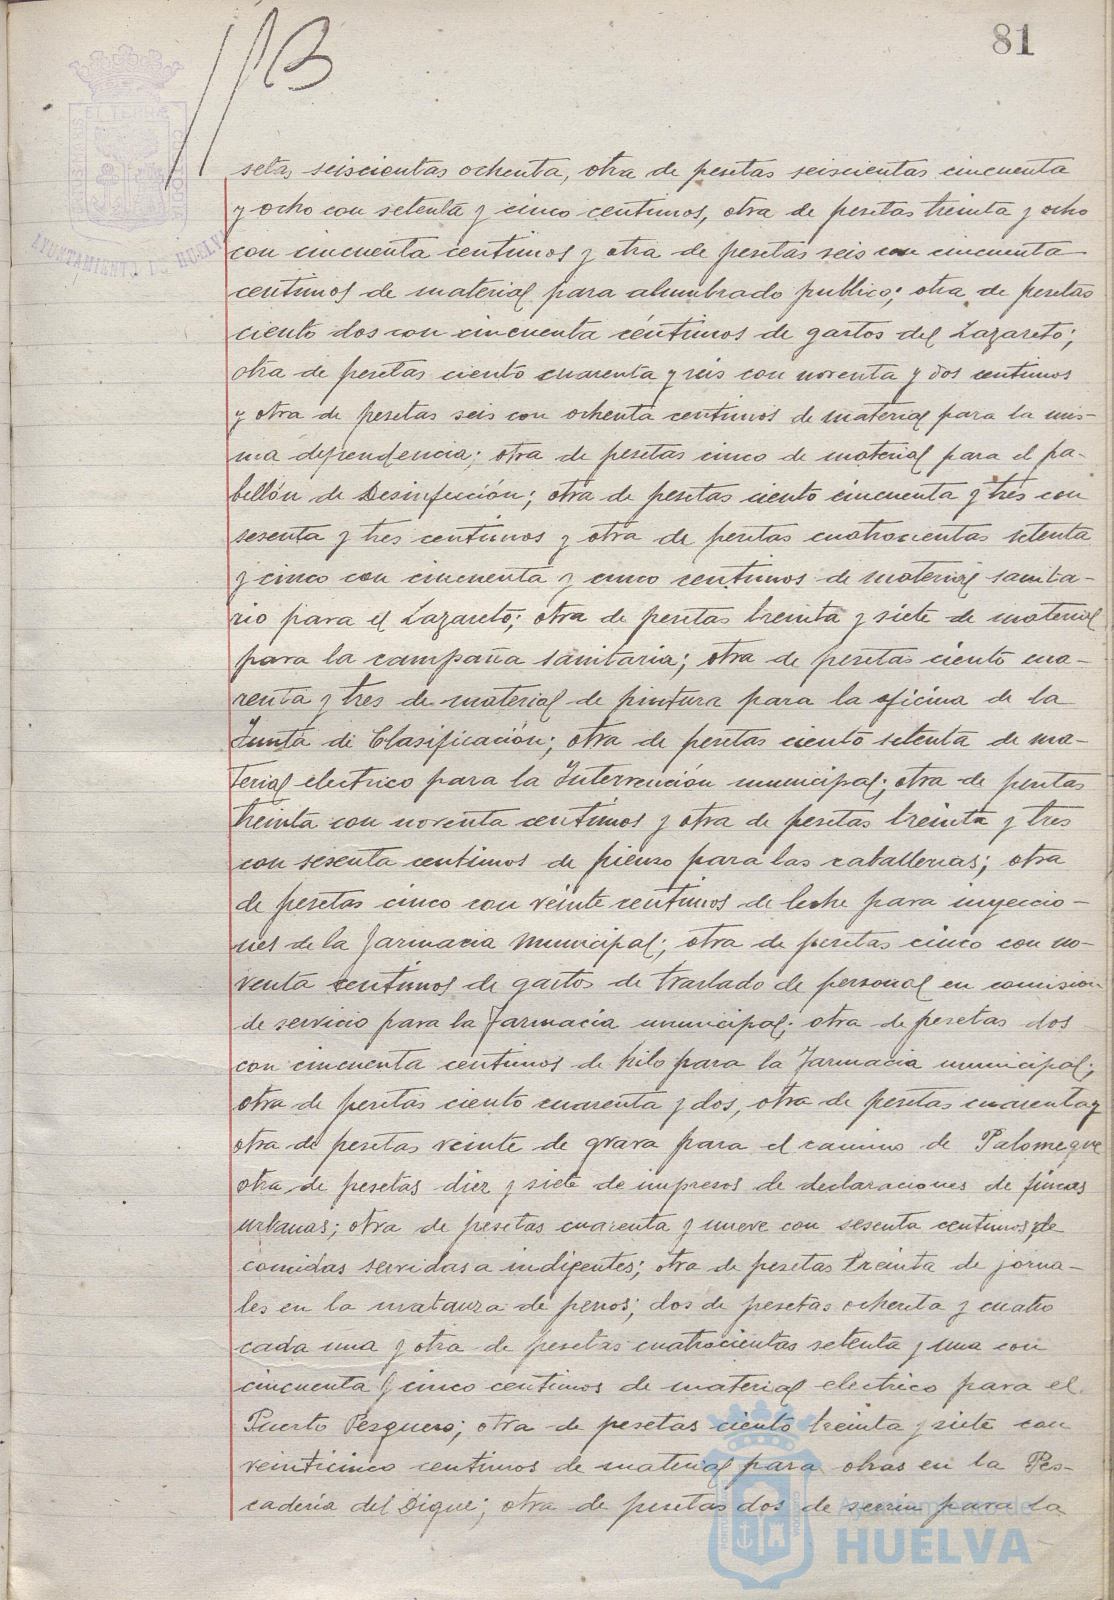 81
AYUNTAMIENTO DE HUELVA
setas seiscientas ochenta, otra de pesetas seiscientas cincuenta
y ocho con setenta y cinco centimos, otra de pesetas treinta y ocho
con cincuenta centimos y otra de pesetas seis con cincuenta
centimos de material para alumbrado publico; otra de pesetas
ciento dos con cincuenta céntimos de gastos del Lazareto;
otra de pesetas ciento cuarenta y seis con noventa y dos centimos
y otra de pesetas seis con ochenta centimos de material para la mis-
ma dependencia; otra de pesetas cinco de material para el pa-
bellón de Desinfección; otra de pesetas ciento cincuenta y tres con
sesenta y tres centimos y otra de pesetas cuatrocientas setenta
y cinco con cincuenta y cinco centimos de material sanita-
rio para el Lazareto; otra de pesetas treinta y siete de material
para la campaña sanitaria; otra de pesetas ciento cua-
renta y tres de material de pintura para la oficina de la
Junta de Clasificación; otra de pesetas ciento setenta de ma-
terial electrico para la Intervención municipal; otra de pesetas
treinta con noventa centimos y otra de pesetas treinta y tres
con sesenta centimos de pienso para las caballerias; otra
de pesetas cinco con veinte centimos de leche para inyeccio-
nes de la farmacia municipal; otra de pesetas cinco con no-
venta centimos de gastos de traslado de personal en comision
de servicio para la farmacia municipal; otra de pesetas dos
con cincuenta centimos de hilo para la farmacia municipal;
otra de pesetas ciento cuarenta y dos, otra de pesetas cuarenta y
otra de pesetas veinte de grava para el camino de Palomeque
otra de pesetas diez y siete de impresos de declaraciones de fincas
urbanas; otra de pesetas cuarenta y nueve con sesenta centimos de
comidas servidas a indigentes; otra de pesetas treinta de jorna-
les en la matanza de perros; dos de pesetas ochenta y cuatro
cada una y otra de pesetas cuatrocientas setenta y una con
cincuenta y cinco centimos de material electrico para el
Puerto Pesquero; otra de pesetas ciento treinta y siete con
veinticinco centimos de material para obras en la Pes-
cadería del Dique; otra de pesetas dos de serrin para la
Ayuntamiento de
HUELVA